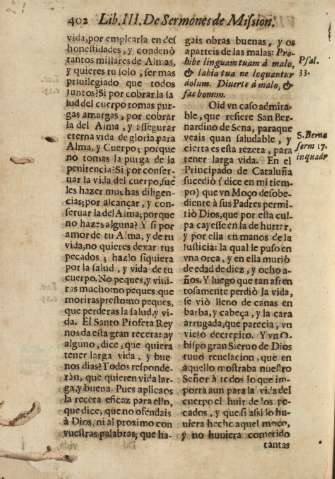 402 Lib. III. De Sermones de Mission.
vida, por emplearla en des
honestidades, y condenò
tantos millares de Almas,
y quieres tu solo, ser mas
privilegiado que todos
juntos? Si por cobrar la sa
lud del cuerpo tomas pur-
gas amargas, por cobrar
la del Alma, y assegurar
eterna vida de gloria para
Alma, y Cuerpo; porque
no tomas la purga de la
penitencia? Si por conser-
uar la vida del cuerpo, sue
les hazer muchas diligen-
cias; por alcançar, y con-
seruar la del Alma, porque
no hazes alguna? Y si por
amor de tu Alma, y de tu
vida, no quieres dexar tus
pecados, hazlo siquiera
por la salud, y vida de tu
cuerpo. No peques, y viui-
ras mucho: no peques, que
moriras presto: no peques,
que perderas la salud, y vi
da. El Santo Profeta Rey
nos da esta gran receta: ay
alguno, dize, que quiera
tener larga vida, y bue-
nos dias? Todos responde-
ràn, que quieren vida lar-
ga, y buena. Pues aplicaos
la receta eficaz para ello,
que dice, que no ofendais
à Dios, ni al proximo con
vuestras palabras; que ha-
gais obras buenas, y os
aparteis de las malas: Pro-
hibe linguam tuam à malo,
& labia tua ne loquantur
dolum. Diuerte à malo, &
fac bonum.
Psal.
33.
Oid vn caso admira-
ble, que refiere San Ber-
nardino de Sena, paraque
veais quan saludable, y
cierta es esta rezeta, para
tener larga vida. En el
Principado de Cataluña
sucediò (dice en mi tiem-
po) que vn Moço desobe-
diente à sus Padres permi-
tiò Dios, que por esta cul-
pa cayesse en la de hurtar,
y por ella en manos de la
Iusticia: la qual le puso en
vna orca, y en ella muriò
de edad de diez, y ocho a-
ños. Y luego que tan afren
tosamente perdiò la vida,
se viò lleno de canas en
barba, y cabeça, y la cara
arrugada, que parecia, vn
viejo decrepito. Y vn O-
bispo gran Sieruo de Dios
tuuo reuelacion, que en
aquello mostraba nuestro
Señor à todos lo que im-
porta aun para la vida del
cuerpo el huir de los pe-
cados, y que si asi lo hu-
uiera hecho aquel moço,
y no huuiera cometido
S. Berna
serm 17.
in quadr
tantas